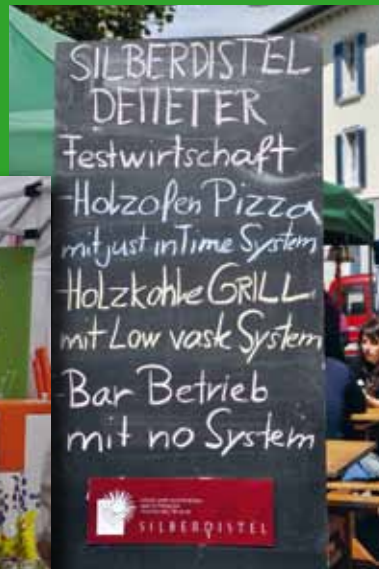 SILBERDISTEL
DEMETER
Festwirtschaft
-Holzofen Pizza
mit just in Time System
-Holzkohle GRILL
mit Low vask System
-Bar Betrieb
mit no System
SILBERDISTEL